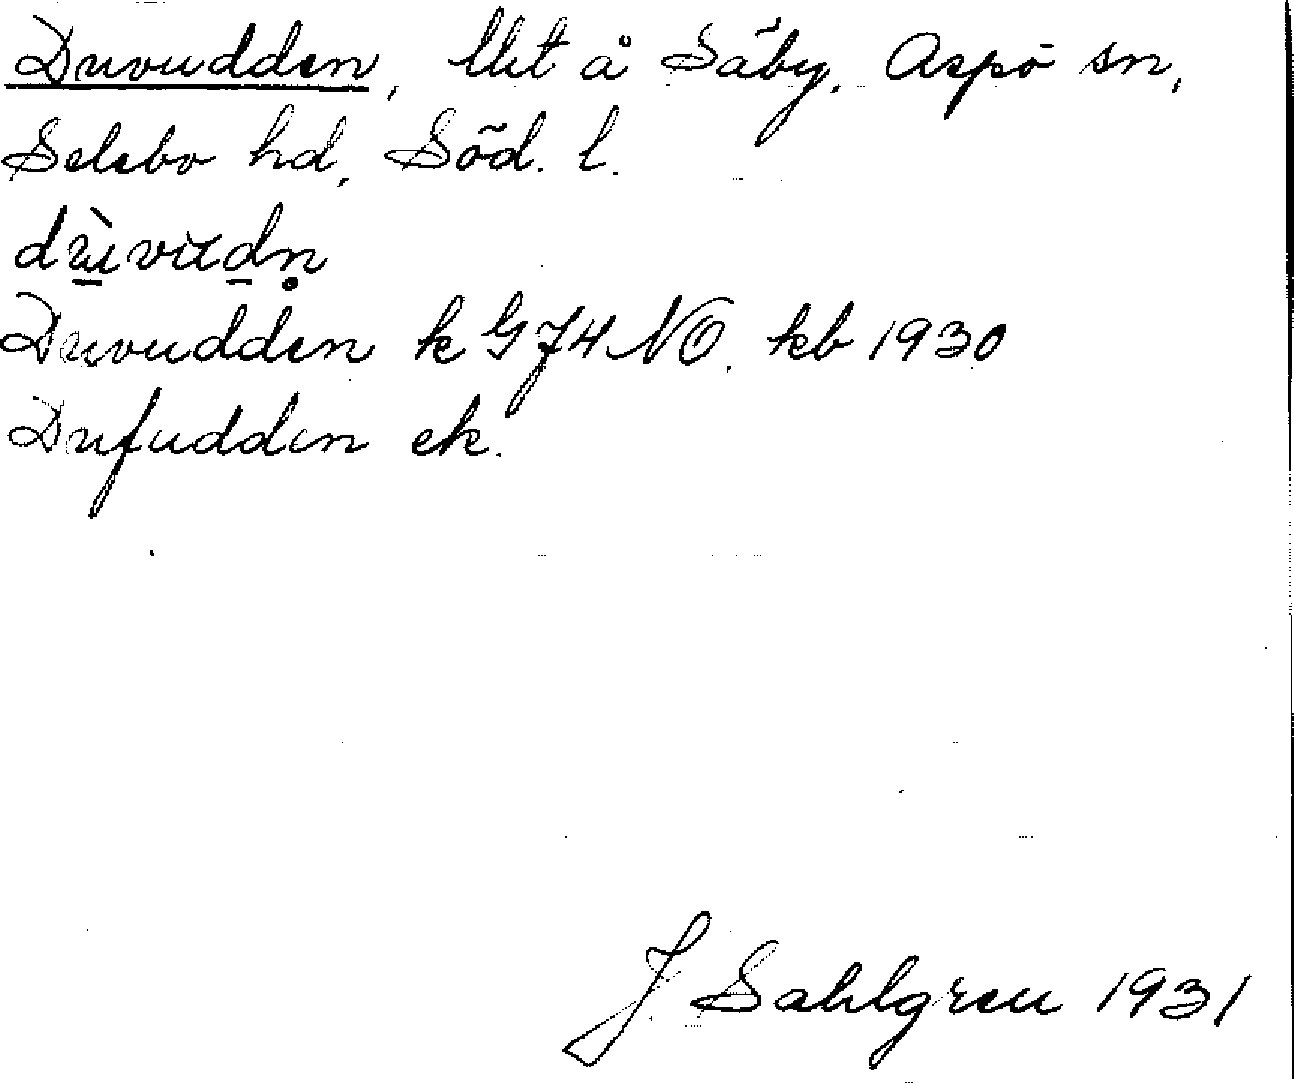 Duvudden, lht å Säby, Aspö sn,
Selebo hd, Söd. l.
dùvudn̥
Duvudden k G74 NO. kb 1930
Dufudden ek.
J Sahlgren 1931